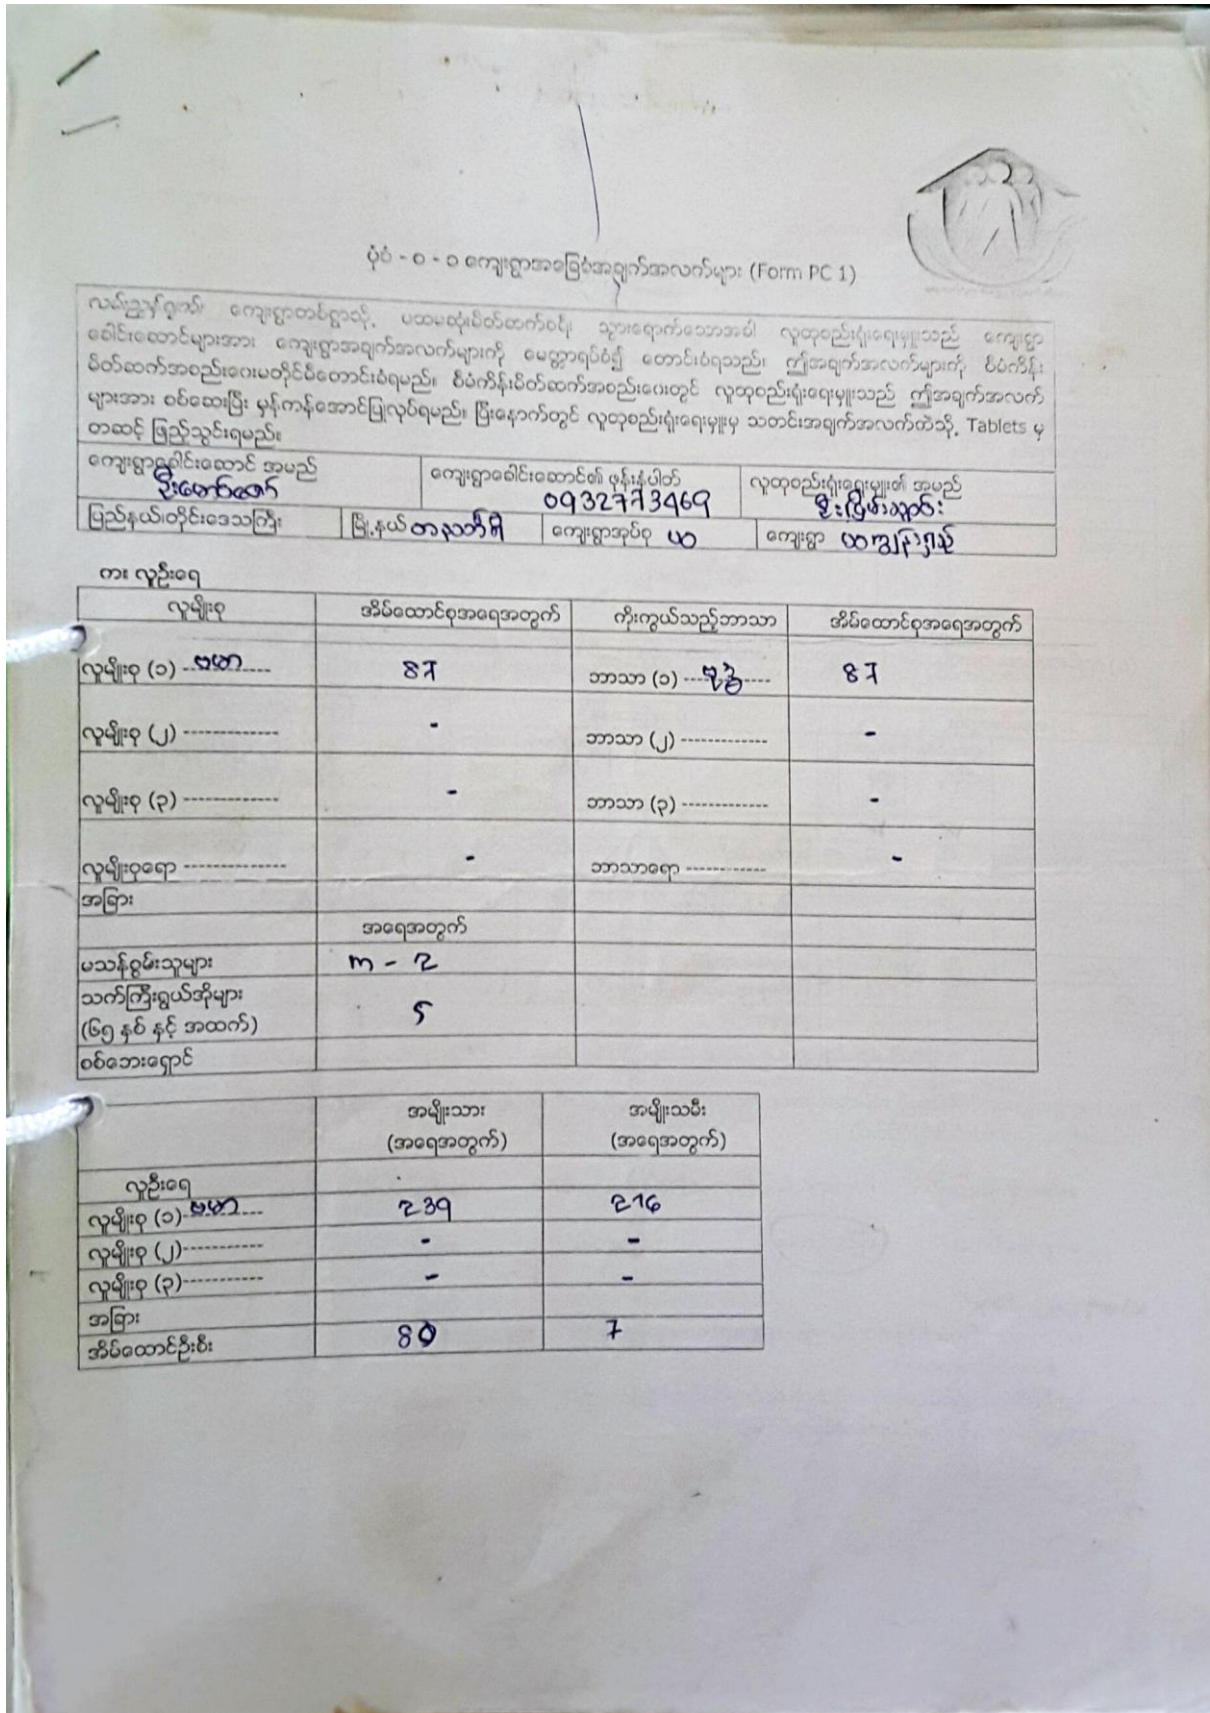 ပုံစံ - ၀ - ၁ ကျေးရွာအခြေခံအချက်အလက်များ (Form PC 1)
လမ်းညွှန်ချက်၊ ကျေးရွာတစ်ရွာသို့ ပထမဆုံးမိတ်ဆက်စဉ် သွားရောက်သောအခါ လူထုစည်းရုံးရေးမှူးသည် ကျေးရွာ
ခေါင်းဆောင်များအား ကျေးရွာအချက်အလက်များကို မေတ္တာရပ်ခံ၍ တောင်းခံရသည်။ ဤအချက်အလက်များကို စီမံကိန်း
မိတ်ဆက်အစည်းဝေးမတိုင်မီတောင်းခံရမည်။ စီမံကိန်းမိတ်ဆက်အစည်းဝေးတွင် လူထုစည်းရုံးရေးမှူးသည် ဤအချက်အလက်
များအား စစ်ဆေးပြီး မှန်ကန်အောင်ပြုလုပ်ရမည်။ ပြီးနောက်တွင် လူထုစည်းရုံးရေးမှူးမှ သတင်းအချက်အလက်ထဲသို့ Tablets မှ
တဆင့် ဖြည့်သွင်းရမည်။
ကျေးရွာခေါင်းဆောင် အမည် ကျေးရွာခေါင်းဆောင်၏ ဖုန်းနံပါတ် လူထုစည်းရုံးရေးမှူး၏ အမည်
ဦးမောင်ဇော် 0932773469
ပြည်နယ်၊တိုင်းဒေသကြီး မြို့နယ် တနင်္သာရီ ကျေးရွာအုပ်စု ယာ ကျေးရွာ
က။ လူဦးရေ
လူမျိုးစု အိမ်ထောင်စုအရေအတွက် ကိုးကွယ်သည့်ဘာသာ အိမ်ထောင်စုအရေအတွက်
လူမျိုးစု (၁) ဗမာ 87 ဘာသာ (၁) ဗုဒ္ဓ 87
လူမျိုးစု (၂) ------------- - ဘာသာ (၂) ------------- -
လူမျိုးစု (၃) ------------- - ဘာသာ (၃) ------------- -
လူမျိုးစုရော -------------- - ဘာသာရော ------------ -
အခြား
အရေအတွက်
မသန်စွမ်းသူများ m - 2
သက်ကြီးရွယ်အိုများ 5
(၆၅ နှစ် နှင့် အထက်)
စစ်ဘေးရှောင်
အမျိုးသား အမျိုးသမီး
(အရေအတွက်) (အရေအတွက်)
လူဦးရေ
လူမျိုးစု (၁) ဗမာ 239 216
လူမျိုးစု (၂)----------- - -
လူမျိုးစု (၃)----------- - -
အခြား
အိမ်ထောင်ဦးစီး 80 7